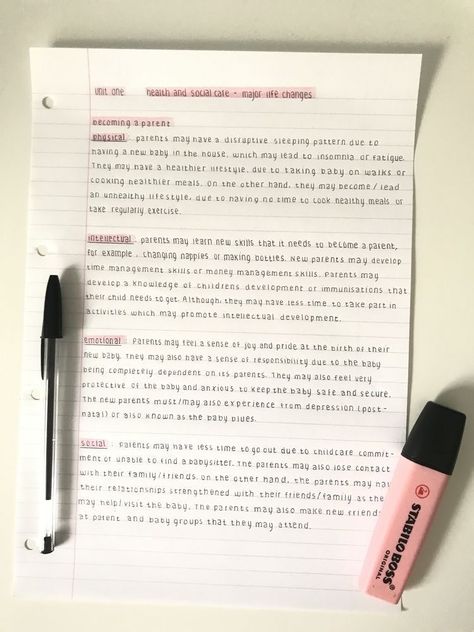 unit one    health and social care - major life changes
becoming a parent
physical : parents may have a disruptive sleeping pattern due to
having a new baby in the house, which may lead to insomnia or fatigue.
They may have a healthier lifestyle, due to taking baby on walks or
cooking healthier meals. on the other hand, they may become / lead
an unhealthy lifestyle, due to having no time to cook healthy meals or
take regularly exercise.
intellectual : parents may learn new skills that it needs to become a parent,
for example, changing nappies or making bottles. New parents may develop
time management skills or money management skills. Parents may
develop a knowledge of childrens development or immunisations that
their child needs to get. Although, they may have less time to take part in
activities which may promote intellectual development.
emotional : Parents may feel a sense of joy and pride at the birth of their
new baby. They may also have a sense of responsibility due to the baby
being completely dependent on its parents. They may also feel very
protective of the baby and anxious to keep the baby safe and secure.
The new parents must/may also experience from depression (post-
natal) or also known as the baby blues.
social : parents may have less time to go out due to childcare commit-
ment or unable to find a babysitter. The parents may also lose contact
with their family/friends. on the other hand, the parents may
their relationships strengthened with their friends/family, as the
may help/visit the baby. The parents may also make new friends
at parent and baby groups that they may attend.
STABILO BOSS
ORIGINAL